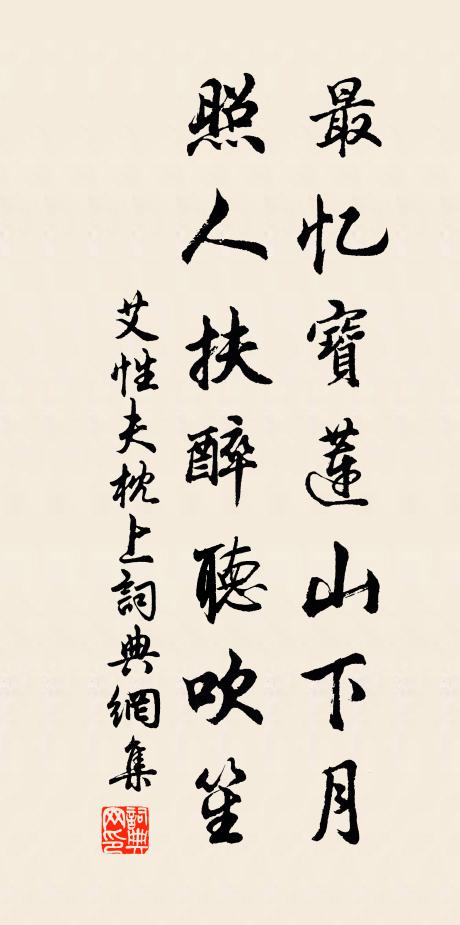 最忆寶蓮山下月
照人扶醉聽吹笙
艾性夫枕上詞典網集
詞典网印